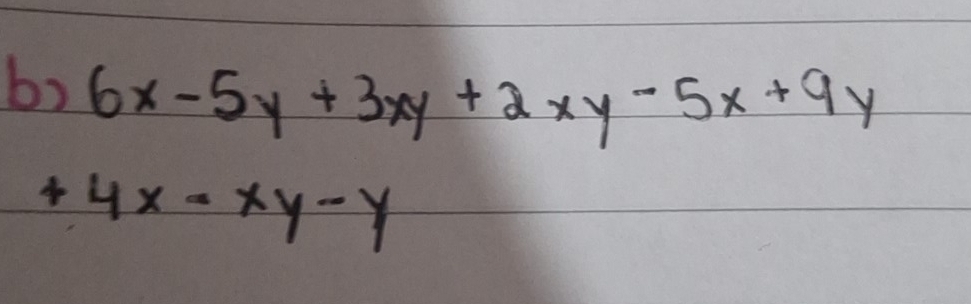 b) 6x - 5y + 3xy + 2xy - 5x + 9y
+ 4x - xy - y